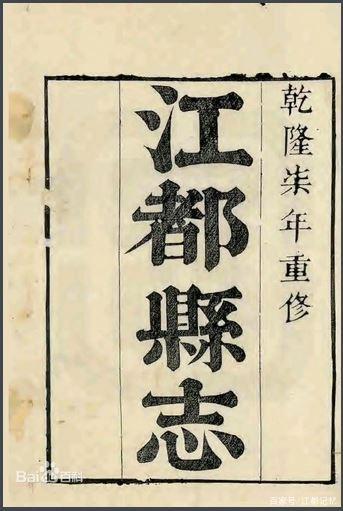 乾隆柒年重修
江都縣志
Baidu百科
百家号/江都记忆